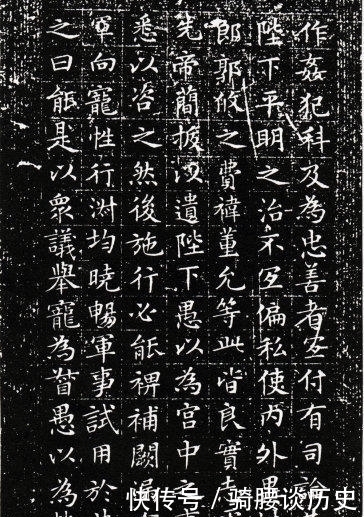 作姦犯科及為忠善者宜付有司論
陛下平明之治不宜偏私使內外異
郎郭攸之費禕董允等此皆良實
先帝簡拔以遺陛下愚以為宮中之
悉以咨之然後施行必能裨補闕漏
軍向寵性行淑均曉暢軍事試用於
之曰能是以眾議舉寵為督愚以為
快传号 / 骑腰谈历史